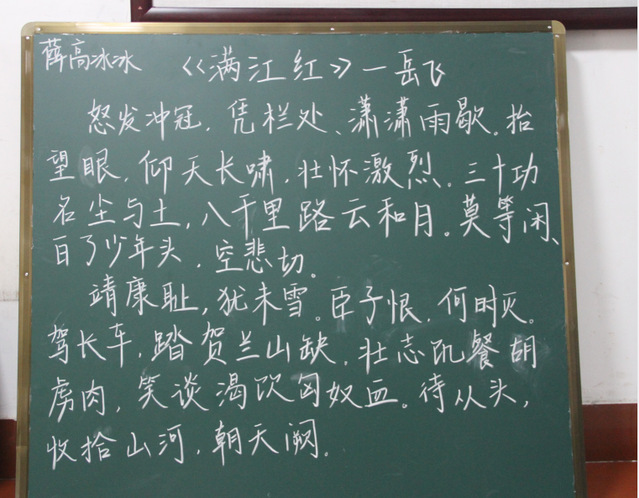 薛高冰冰 《满江红》—岳飞
怒发冲冠，凭栏处、潇潇雨歇。抬
望眼，仰天长啸，壮怀激烈。三十功
名尘与土，八千里路云和月。莫等闲、
白了少年头，空悲切。
靖康耻，犹未雪。臣子恨，何时灭。
驾长车，踏贺兰山缺，壮志饥餐胡
虏肉，笑谈渴饮匈奴血。待从头，
收拾山河，朝天阙。